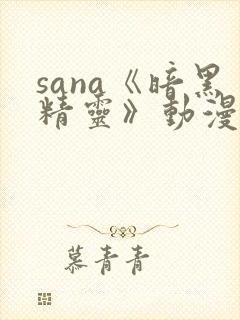 sana《暗黑
精靈》動漫
慕青青